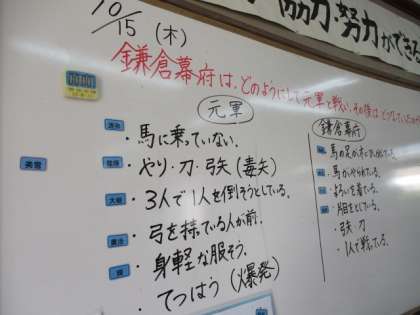 協力・努力ができる
10/15 (木)
鎌倉幕府は、どのようにして元軍と戦い、その後は
元軍
・馬に乗っていない。
・やり・刀・弓矢(毒矢)
・3人で1人を倒そうとしている。
・弓を持っている人が前。
・身軽な服そう。
・てつはう(爆発)
鎌倉幕府
馬の足が
馬がやられている。
よろいを着ている。
・弓矢・刀
・1人で戦っている。